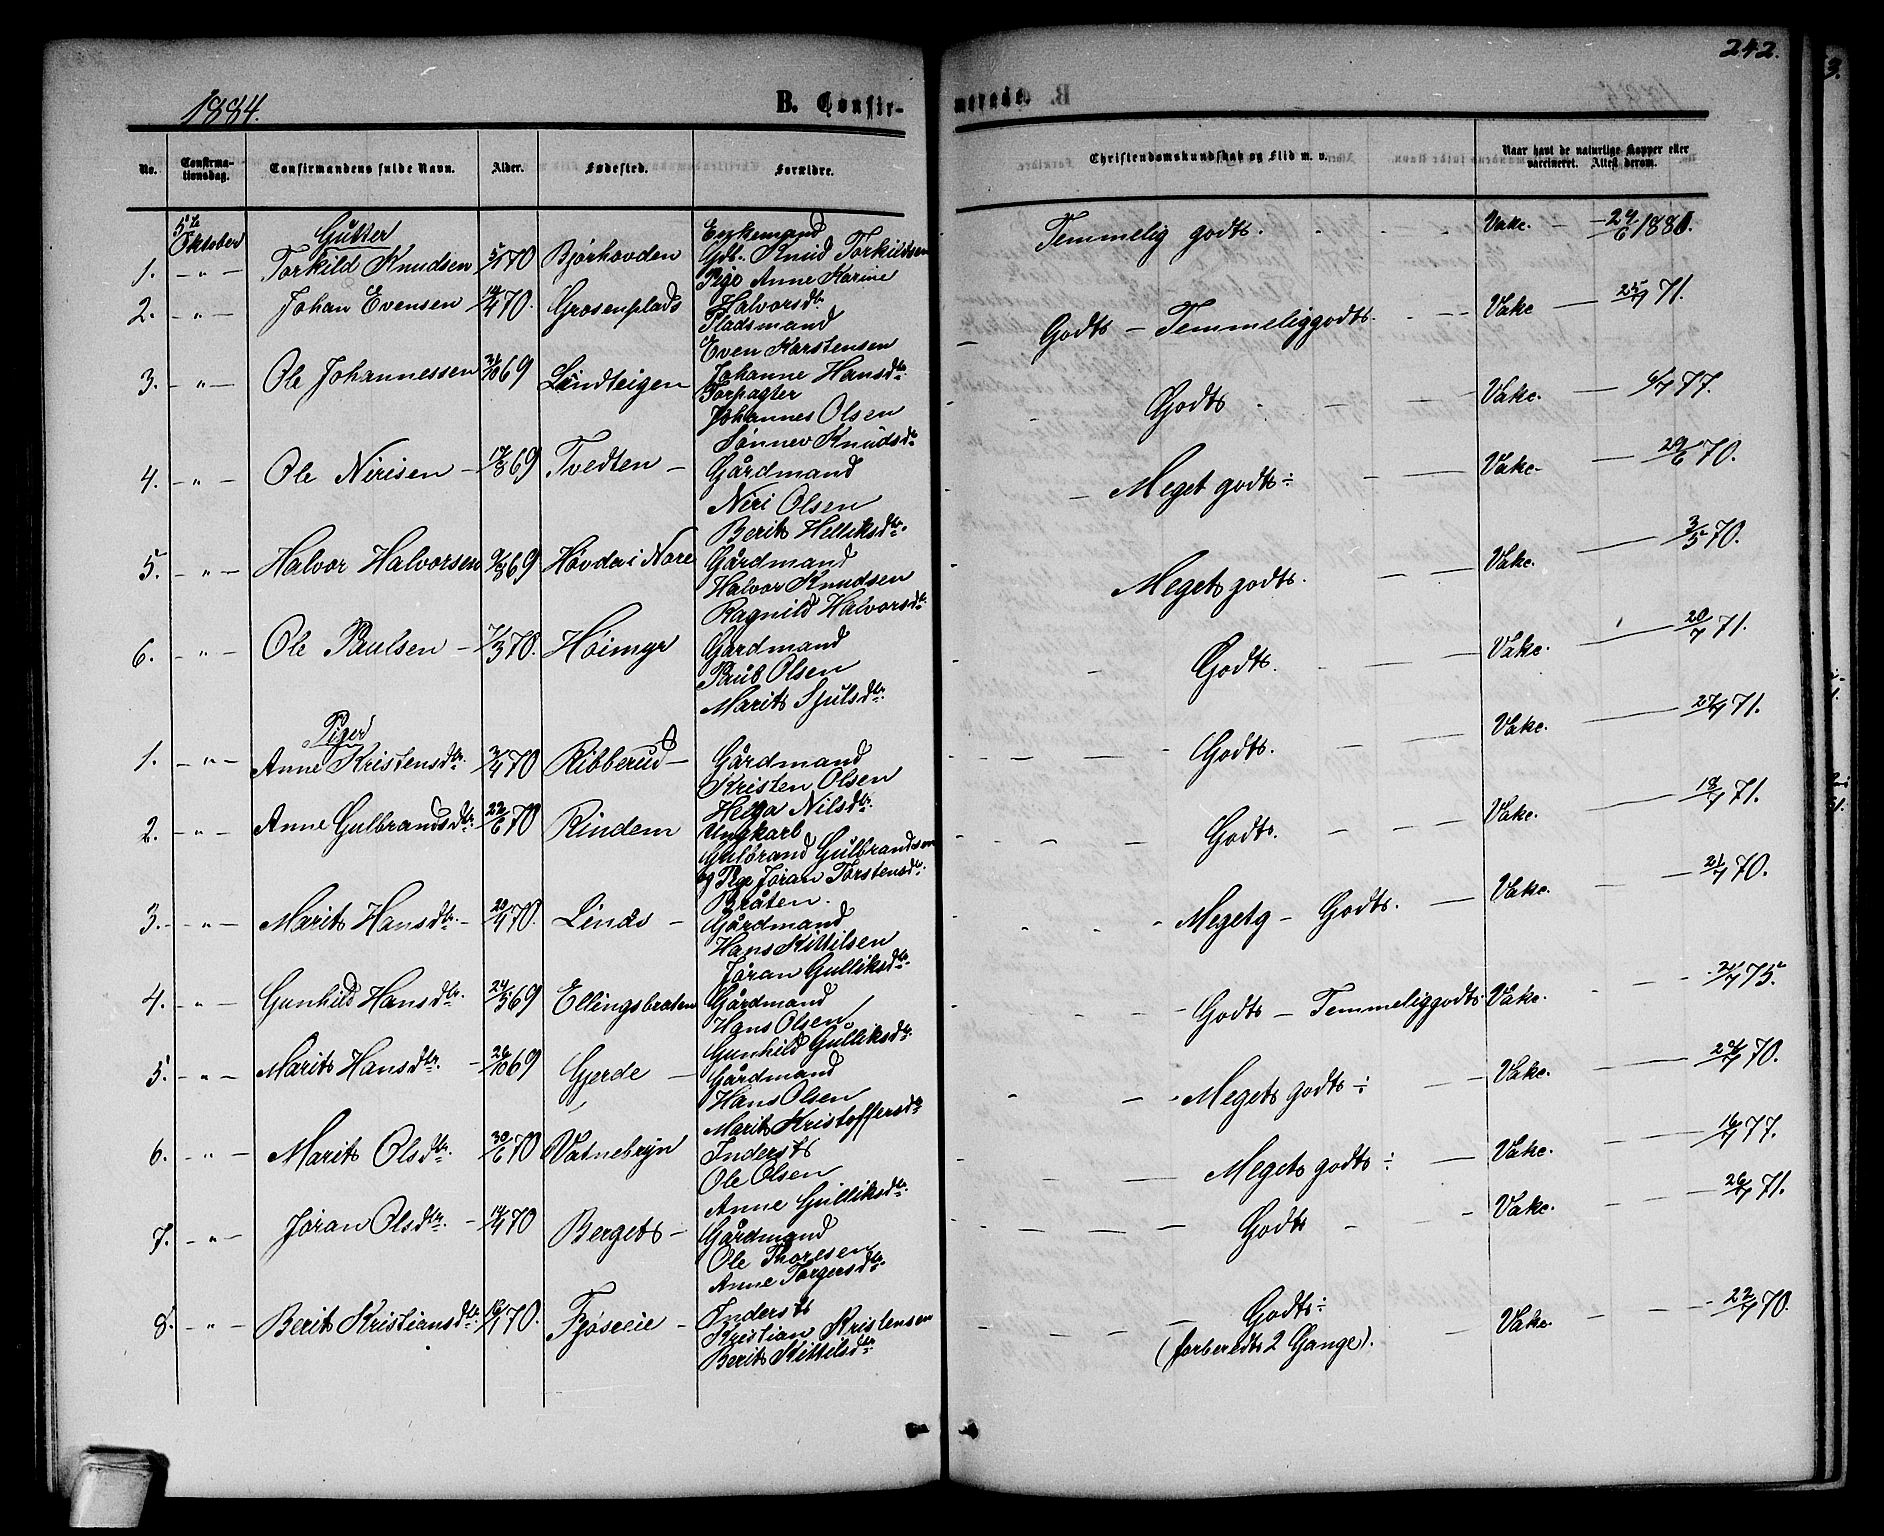 242.
1884.
B. Confir-
merede.
No.
Confirma-
tionsdag.
Confirmandens fulde Navn.
Alder.
Fødested.
Forældre.
Christendomskundskab og Flid m. v.
Naar havt de naturlige Kopper eller
vaccineret. Attest derom.
5te Oktober
Gutter
1. - " - Torkild Knudsen 5/1 70 Bjørhovden
Enkemand
Gdb. Knud Torkildsen
Pige Anne Karine
Halvorsdtr
Temmelig godt. Vakc. - 29/6 1880.
2. - " - Johan Evensen 14/4 70. Grosenplads
Pladsmand
Even Karstensen
Johanne Hansdtr
Godt - Temmelig godt. Vakc - 25/7 71.
3. - " - Ole Johannessen 31/10 69 Lindteigen
Forpagter
Johannes Olsen
Sønnev Knudsdtr
Godt Vakc. 6/7 77.
4. - " - Ole Nirisen - 17/3 69 Tvedten -
Gårdmand
Niri Olsen
Berit Helliksdtr.
Meget godt ÷ Vakc. - 29/6 70.
5. - " - Halvor Halvorsen 9/3 69 Høvde i Nore
Gårdmand
Halvor Knudsen
Ragnild Halvorsdtr
Meget godt. Vakc. - 3/5 70.
6. - " - Ole Paulsen - 7/3 70. Høimyr
Gårdmand
Paul Olsen
Marit Sjulsdtr
Godt. Vakc. 20/7 71.
Piger
1. - " - Anne Kristensdtr. 3/4 70 Ribberud -
Gårdmand
Kristen Olsen
Helga Nilsdtr.
Godt. Vakc. - 27/7 71.
2. - " - Anne Gulbrandsdtr. 22/6 70 Rindem
Ungkarl
Gulbrand Gulbrandsen
og Pige Jøran Torstensdtr.
Bråten.
Godt. Vakc. 18/7 71.
3. - " - Marit Hansdtr. - 20/4 70. Lind -
Gårdmand
Hans Kittilsen
Jøran Gulliksdtr.
Meget g - Godt. Vakc. - 21/7 70.
4. - " - Gunhild Hansdtr. 24/5 69 Ellingsbraten
Gårdmand
Hans Olsen
Gunhild Gulliksdtr.
Godt - Temmelig godt Vakc. 21/7 75.
5. - " - Marit Hansdtr. - 26/10 69 Gjerde -
Gårdmand
Hans Olsen
Marit Kristoffersdtr
Meget godt ÷ Vakc. 29/7 70.
6. - " - Marit Olsdtr. 30/6 70 Vatnebryn
Inderst
Ole Olsen
Anne Gulliksdtr.
Meget godt ÷ Vakc. 16/7 77.
7. - " - Jøran Olsdtr. - 14/4 70 Berget -
Gårdmand
Ole Thoresen
Anne Torgersdtr
Godt Vakc. 26/7 71.
8. - " - Berit Kristiansdtr. 16/1 70. Fjøseie -
Inderst
Kristian Kristensen
Berit Kittilsdtr
Godt ÷
(forberedt 2 Gange). Vakc. 22/7 70.